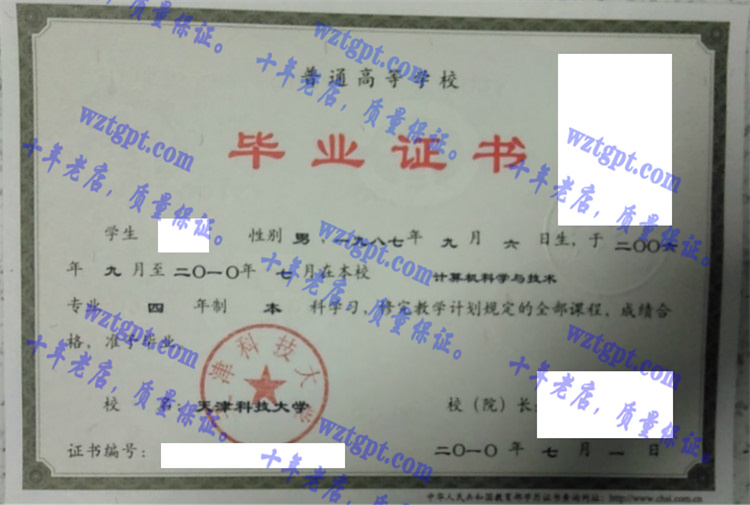 普通高等学校
毕业证书
学生 性别 男，一九八七年 九 月 六 日生，于 二〇〇六
年 九 月至 二〇一〇年 七 月在本校 计算机科学与技术
专业 四 年制 本 科学习，修完教学计划规定的全部课程，成绩合
格，准予毕业。
天津科技大学
校 名：天津科技大学 校（院）长：
证书编号： 二〇一〇 年 七 月 一 日
中华人民共和国教育部学历证书查询网址：http://www.chsi.com.cn
wztgpt.com
十年老店，质量保证。
wztgpt.com
十年老店，质量保证。
wztgpt.com
十年老店，质量保证。
wztgpt.com
十年老店，质量保证。
wztgpt.com
十年老店，质量保证。
wztgpt.com
十年老店，质量保证。
wztgpt.com
十年老店，质量保证。
wztgpt.com
十年老店，质量保证。
wztgpt.com
十年老店，质量保证。